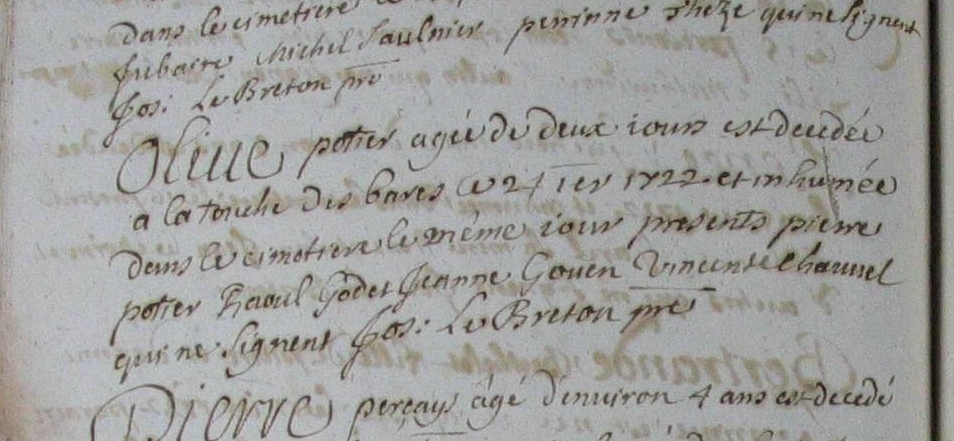 dans le cimetiere
Michel Saulnier perinne qui ne signent
Jos: Le Breton pre
Olive potier agée de deux iours est decedée
a la touche des bares le 24 1er 1722 et inhumée
dans le cimetiere le même iour presents pierre
potier Raoul Godet Jeanne Gouen Vincente chauvel
qui ne signent Jos: Le Breton pre
Pierre perçays âgé d'environ 4 ans est decedé